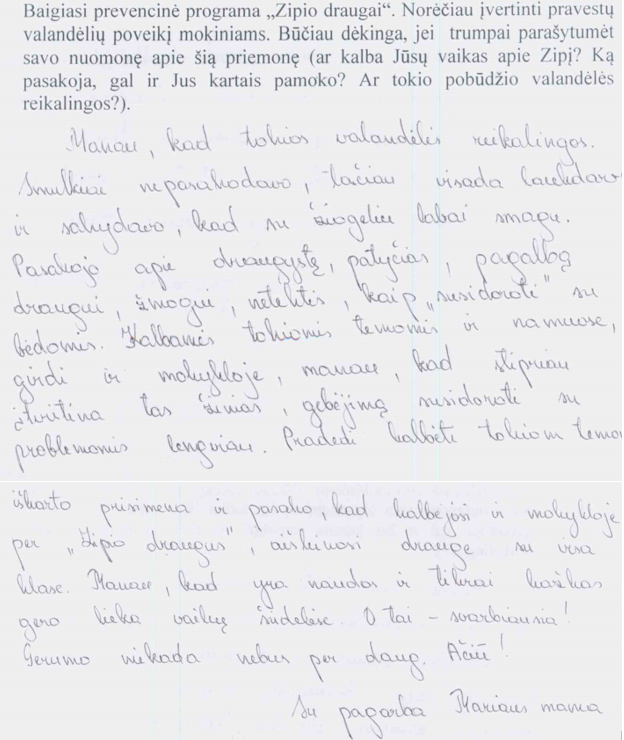 Baigiasi prevencinė programa „Zipio draugai“. Norėčiau įvertinti pravestų
valandėlių poveikį mokiniams. Būčiau dėkinga, jei trumpai parašytumėt
savo nuomonę apie šią priemonę (ar kalba Jūsų vaikas apie Zipį? Ką
pasakoja, gal ir Jus kartais pamoko? Ar tokio pobūdžio valandėlės
reikalingos?).
Manau, kad tokios valandėlės reikalingos.
Smulkiai nepasakodavo, tačiau visada laukdavo
ir sakydavo, kad su žiogeliu labai smagu.
Pasakojo apie draugystę, patyčias, pagalbą
draugui, žmogui, netektis, kaip „susidoroti" su
bėdomis. Kalbamės tokiomis temomis ir namuose,
girdi ir mokykloje, manau, kad stipriau
įtvirtina tas žinias, gebėjimą susidoroti su
problemomis lengviau. Pradedi kalbėti tokiom temom
iškarto prisimena ir pasako, kad kalbėjosi ir mokykloje
per „Zipio draugus", aiškinosi drauge su visa
klase. Manau, kad yra naudos ir tikrai kažkas
gero lieka vaikų širdelėse. O tai - svarbiausia!
Gerumo niekada nebus per daug. Ačiū!
Su pagarba Mariaus mama